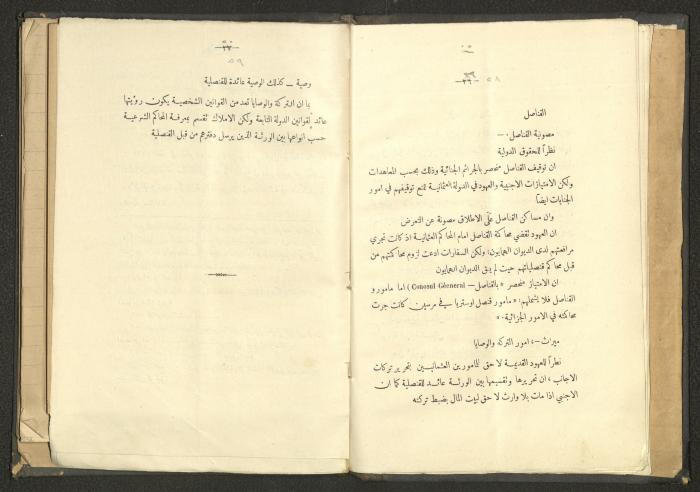 القناصل
مصونية القناصل :—
نظراً للحقوق الدولية
ان توقيف القناصل منحصر بالجرائم الجنائية وذلك بحسب المعاهدات
ولكن الامتيازات الاجنبية والعهود في الدولة العثمانية تمنع توقيفهم في امور
الجنايات ايضاً
وان مساكن القناصل على الاطلاق مصونة عن التعرض
ان العهود تقضي محاكمة القناصل امام المحاكم العثمانية اذ كانت تجري
مرافعتهم لدى الديوان الهمايون؛ ولكن السفارات ادعت لزوم محاكمتهم من
قبل محاكم قنصلياتهم حيث لم يبق الديوان الهمايون
ان الامتياز منحصر « بالقناصل — Consul Géeneral) اما مامورو
القناصل فلا يشملهم: « مامور قنصل اوستريا في مرسين كانت جرت
محاكمته في الامور الجزائية. »
ميرث —، امور التركه والوصايا
نظراً للعهود القديمة لا حق للمامورين العثمانيين بتحرير تركات
الاجانب ، ان تحريرها وتقسيمها بين الورثة عائد للقنصلية كما ان
الاجنبي اذا مات بلا وارث لا حق لبيت المال بضبط تركته
٥٨
وصية — كذلك الوصية عائدة للقنصلية
بما ان التركة والوصايا تعد من القوانين الشخصية يكون رؤيتها
عائد لقوانين الدولة التابعة ولكن الاملاك تقسم بمعرفة المحاكم الشرعية
حسب انواعها بين الورثة الذين يرسل دفترهم من قبل القنصلية
٥٩